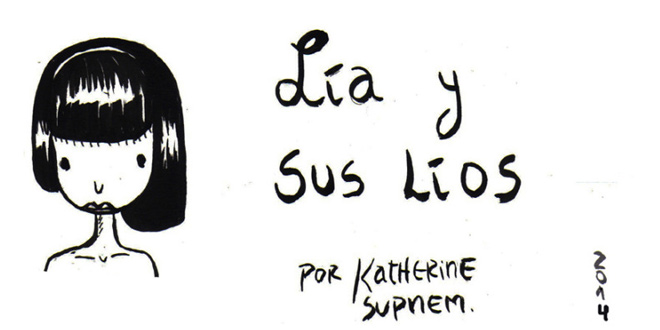 Lía y
sus Líos
POR KATHERINE
SUPNEM.
2014